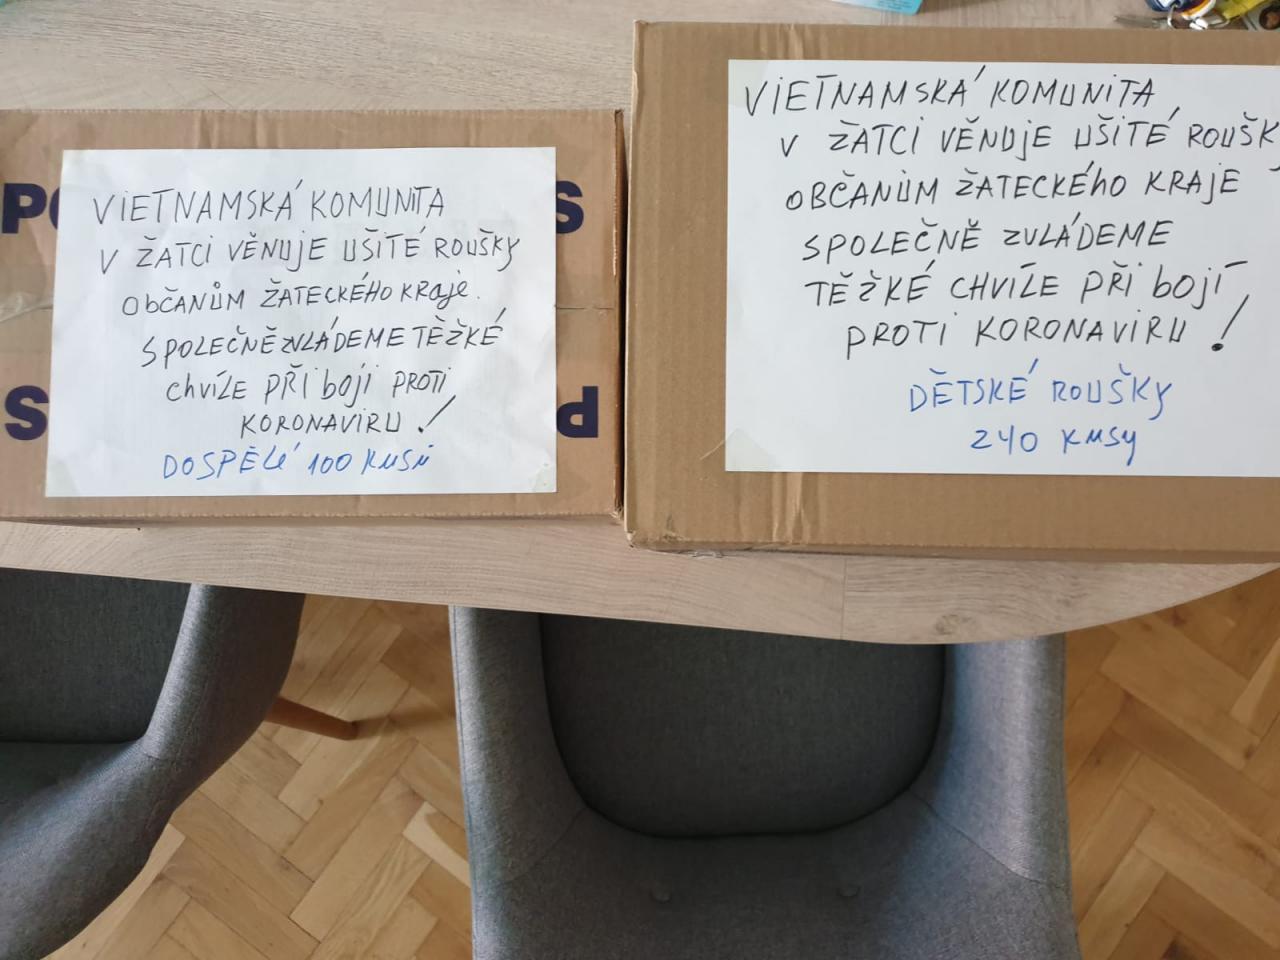 VIETNAMSKÁ KOMUNITA
V ŽATCI VĚNUJE UŠITÉ ROUŠKY
OBČANŮM ŽATECKÉHO KRAJE.
SPOLEČNĚ ZVLÁDEME TĚŽKÉ
CHVÍLE PŘI BOJI PROTI
KORONAVIRU!
DOSPĚLÉ 100 KUSŮ
VIETNAMSKÁ KOMUNITA
V ŽATCI VĚNUJE UŠITÉ ROUŠK
OBČANŮM ŽATECKÉHO KRAJE
SPOLEČNĚ ZVLÁDEME
TĚŽKÉ CHVÍLE PŘI BOJÍ
PROTI KORONAVIRU!
DĚTSKÉ ROUŠKY
240 KUSY